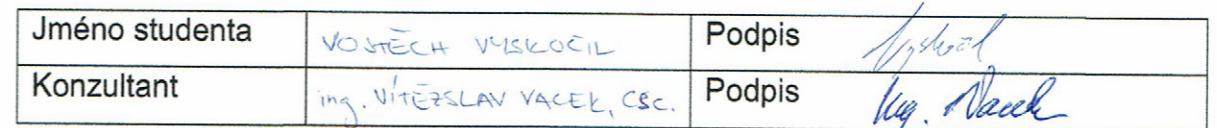 Jméno studenta VOJTĚCH VYSKOČIL Podpis Vyskočil
Konzultant ing. VÍTĚZSLAV VACEK, CSC. Podpis Ing. Vacek